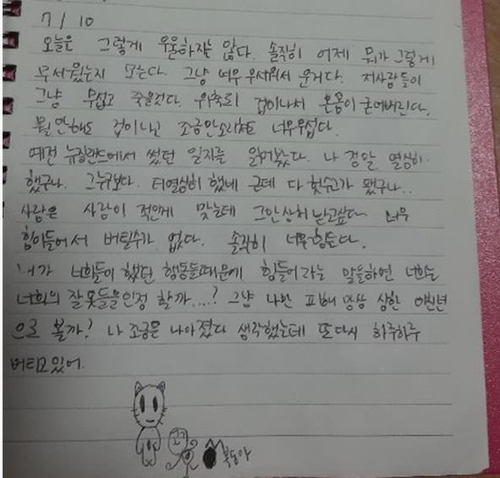 7 / 10
오늘은 그렇게 우울하지는 않다. 솔직히 어제 뭐가 그렇게
무서웠는지 모른다. 그냥 너무 무서워서 운거다. 지사람들이
그냥 무섭고 죽을것다. 위축되 겁이나서 온몸이 굳어버린다.
뭘 안해도 겁이나고 조금만소리쳐도 너무무섭다.
예전 뉴질랜드에서 썼던 일지를 읽어봤다. 나 정말 열심히
했구나. 그누구보다. 더열심히 했네 근데 다 헛수고가 됐구나..
사람은 사람이 적안에 맞는데 그안 살고싶다 너무
힘이들어서 버틸수가 없다. 솔직히 너무힘든다.
내가 너희들이 했던 행동들때문에 힘들어라는 말들하면 너희는
너희의 잘못들을인정 할까....? 그냥 나만 피해망상 상한 미친년
으로 볼까? 나 조금은 나아졌다 생각했는데 또다시 하루하루
버티고있어.
복동아